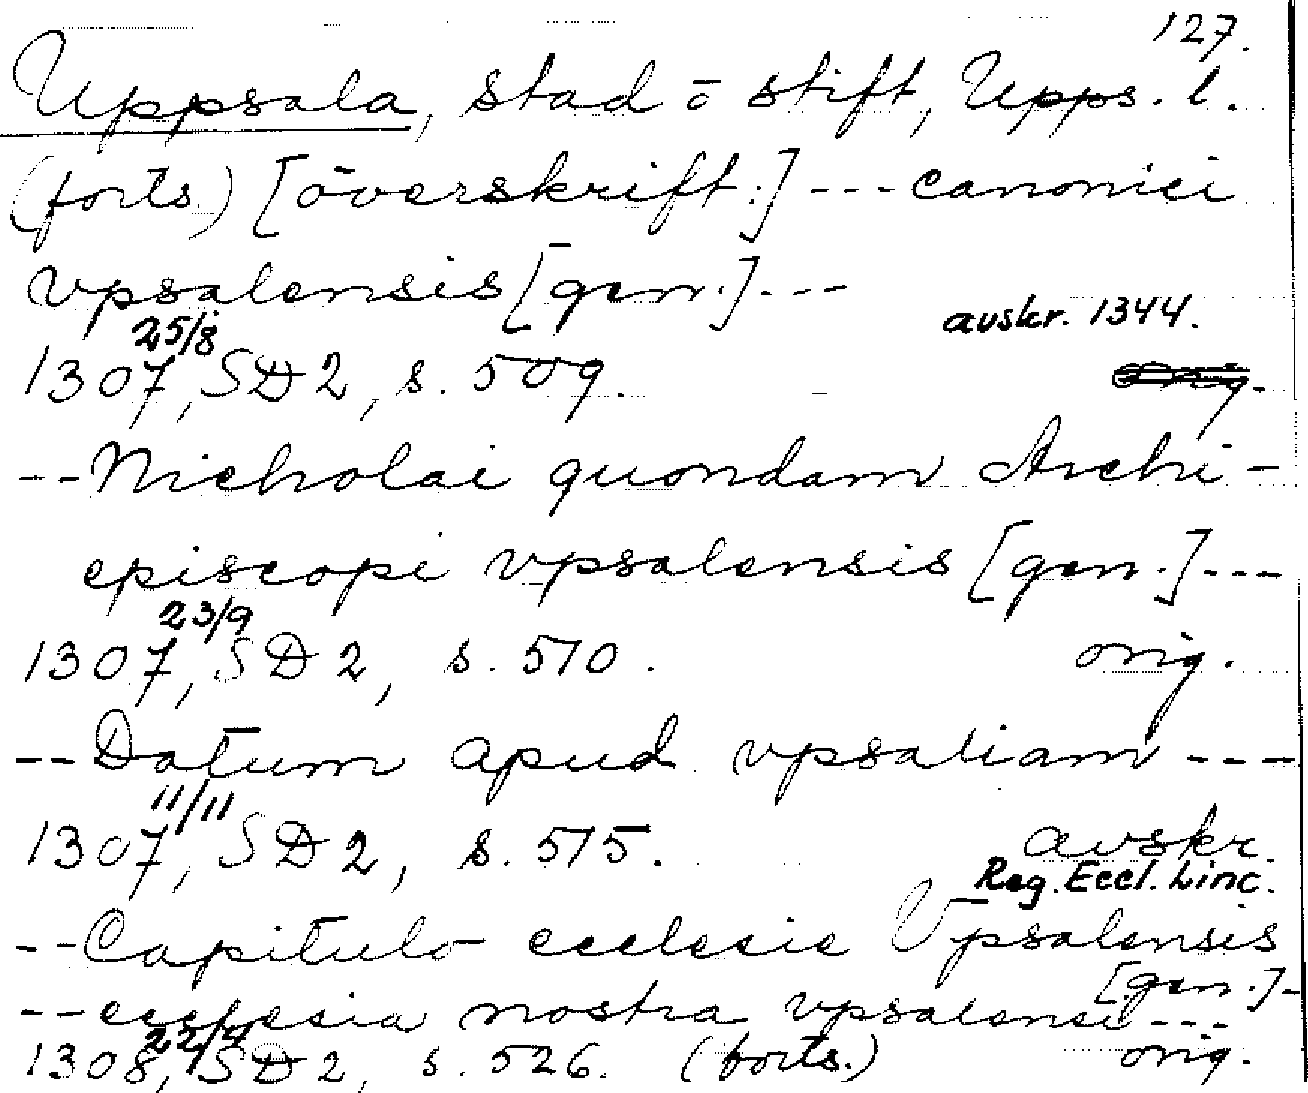 127.
Uppsala, stad o stift, Upps. l.
(forts.) [överskrift:] --- canonici
vpsalensis [gen.]. ---
25/8 avskr. 1344.
1307, SD 2, s. 509. orig.
-- Nicholai quondam Archi-
episcopi vpsalensis [gen.] ---
23/9
1307, SD 2, s. 510. orig.
-- Datum apud vpsaliam ---
11/11
1307, SD 2, s. 515. avskr.
Reg. Eccl. Linc.
-- Capitulo ecclesie Vpsalensis
[gen.] -
-- ecclesia nostra vpsalensi ---
22/4
1308, SD 2, s. 526. (forts.) orig.